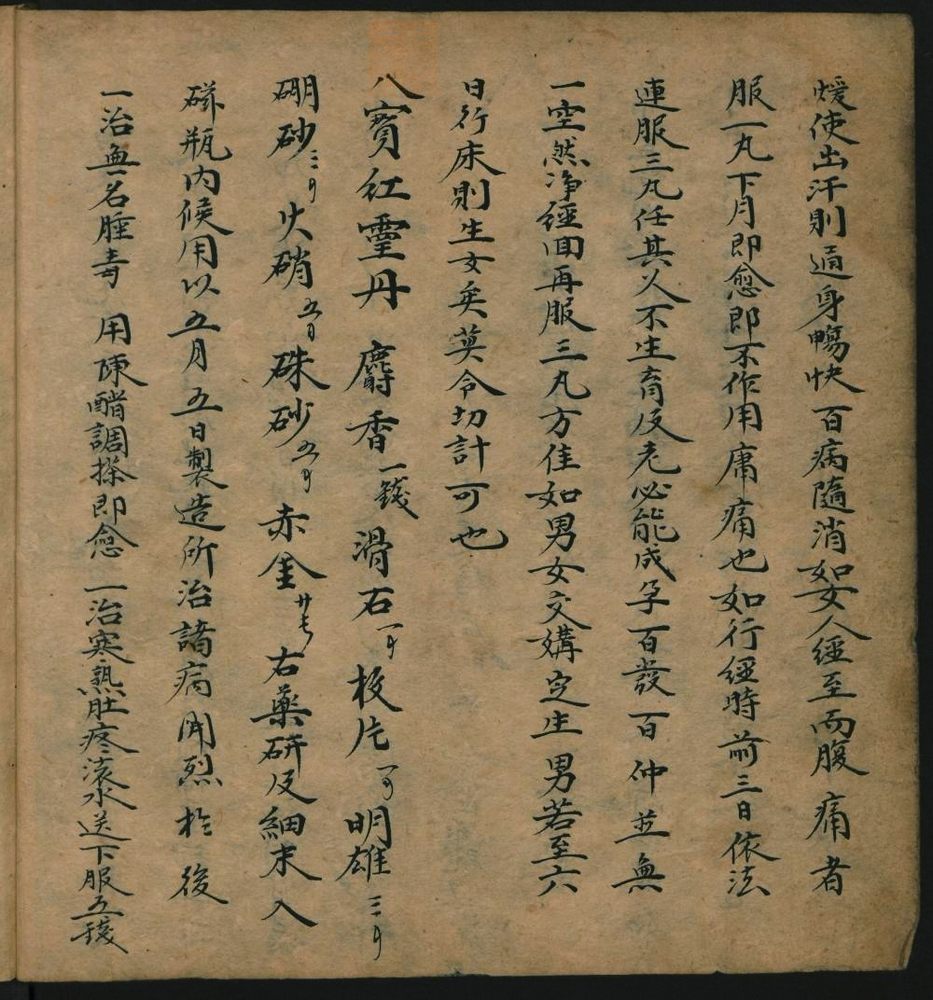 煖使出汗則通身暢快百病隨消如女人經至而腹痛者
服一丸下月即愈即不作用庸痛也如行經時前三日依法
連服三丸任其人不生育反老必能成孕百發百仲並無
一空然净經回再服三丸方佳如男女交媾定生男若至六
日行床則生女矣莫令切計可也
八寶紅靈丹麝香一錢滑石一刄梅片一刄明雄三刄
硼砂三刄火硝五刄硃砂五刄赤金廿毛右藥研及細末入
磁瓶內候用以五月五日製造所治諸病開烈於後
一治無名腫毒 用陳醋調搽即愈 一治寒熱肚疼滾水送下服五錢